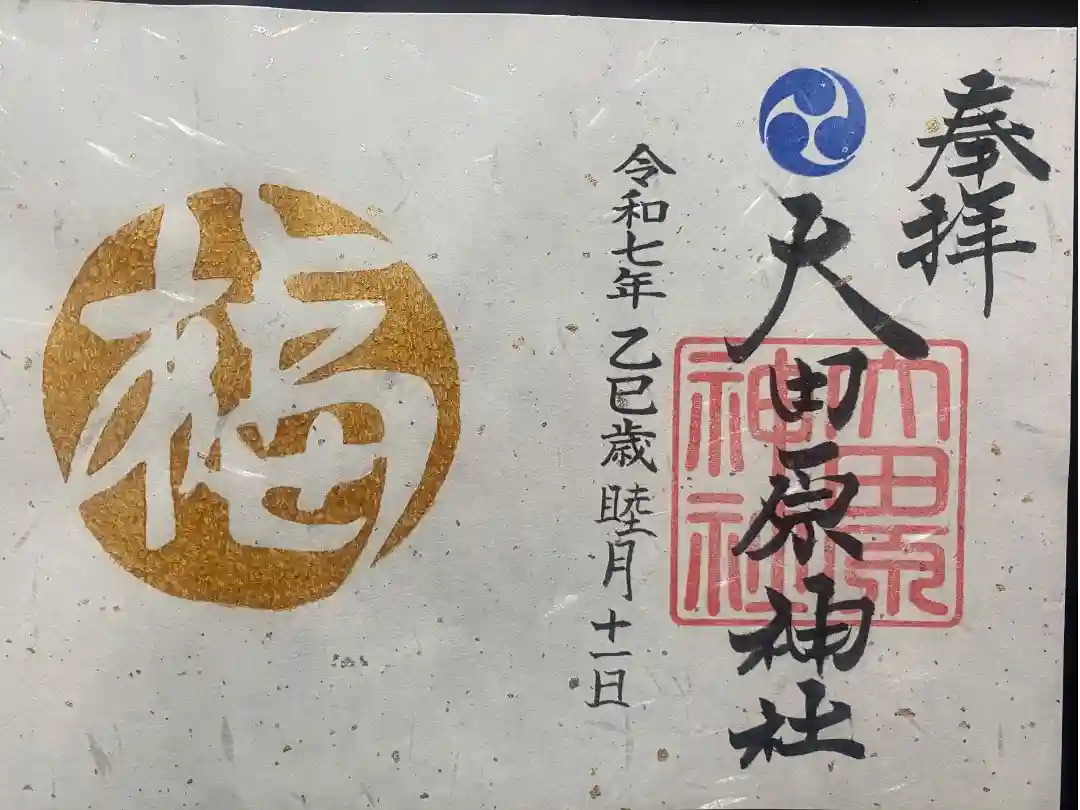 奉拝
大田原神社
大田原
神社
令和七年乙巳歳睦月十一日
福